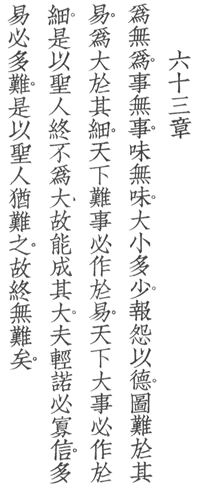 六十三章
爲無爲。事無事。味無味。大小多少。報怨以德。圖難於其
易。爲大於其細。天下難事必作於易。天下大事必作於
細。是以聖人終不爲大、故能成其大。夫輕諾必寡信。多
易必多難。是以聖人猶難之。故終無難矣。